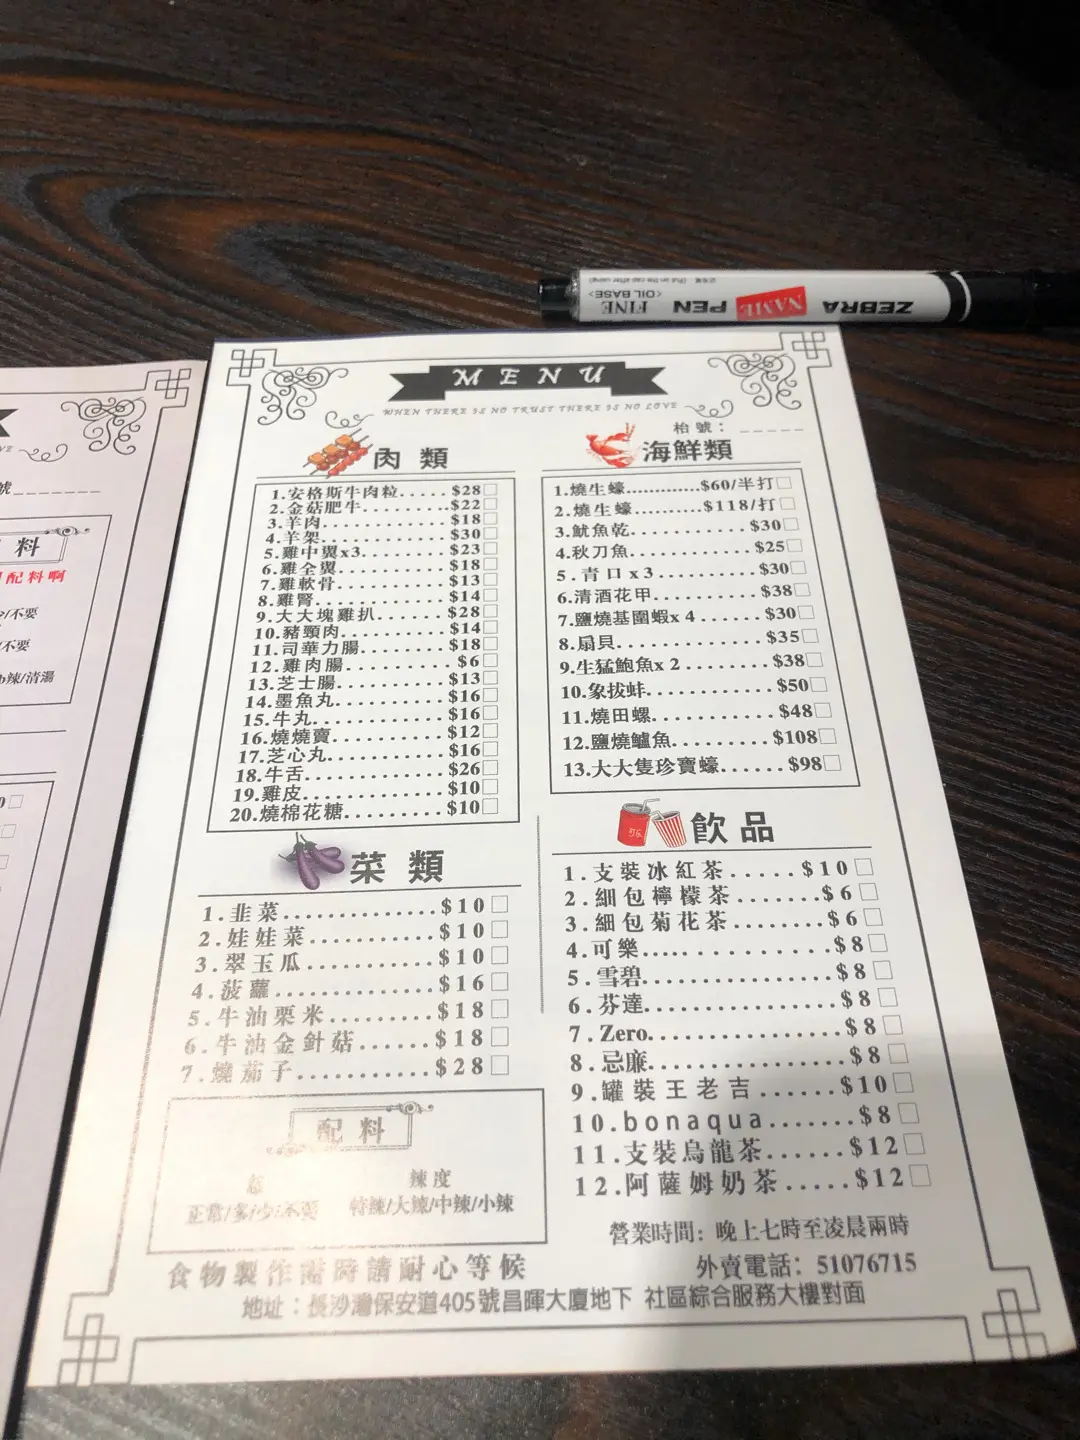 ZEBRA NAME PEN FINE <OIL BASE>
MENU
WHEN THERE IS NO TRUST THERE IS NO LOVE
枱號：_ _ _ _ _
肉類
1.安格斯牛肉粒.....$28
2.金菇肥牛.........$22
3.羊肉............$18
4.羊架............$30
5.雞中翼x3........$23
6.雞全翼..........$18
7.雞軟骨..........$13
8.雞腎............$14
9.大大塊雞扒......$28
10.豬頸肉.........$14
11.司華力腸.......$18
12.雞肉腸.........$6
13.芝士腸.........$13
14.墨魚丸.........$16
15.牛丸...........$16
16.燒燒賣.........$12
17.芝心丸.........$16
18.牛舌...........$26
19.雞皮...........$10
20.燒棉花糖.......$10
海鮮類
1.燒生蠔............$60/半打
2.燒生蠔..........$118/打
3.魷魚乾..........$30
4.秋刀魚..........$25
5.青口x3..........$30
6.清酒花甲........$38
7.鹽燒基圍蝦x4......$30
8.扇貝............$35
9.生猛鮑魚x2........$38
10.象拔蚌..........$50
11.燒田螺..........$48
12.鹽燒鱸魚........$108
13.大大隻珍寶蠔......$98
菜類
1.韭菜..............$10
2.娃娃菜...........$10
3.翠玉瓜...........$10
4.菠蘿.............$16
5.牛油粟米.........$18
6.牛油金針菇.......$18
7.燒茄子...........$28
飲品
1.支裝冰紅茶.....$10
2.細包檸檬茶......$6
3.細包菊花茶......$6
4.可樂..............$8
5.雪碧.............$8
6.芬達.............$8
7.Zero.............$8
8.忌廉.............$8
9.罐裝王老吉......$10
10.bonaqua.......$8
11.支裝烏龍茶......$12
12.阿薩姆奶茶.....$12
配料
辣度
正常/多/少/不要 特辣/大辣/中辣/小辣
營業時間：晚上七時至凌晨兩時
外賣電話：51076715
食物製作需時請耐心等候
地址：長沙灣保安道405號昌暉大廈地下 社區綜合服務大樓對面
號_ _ _ _ _ _
料
配料啊
/不要
/不要
辣/清湯